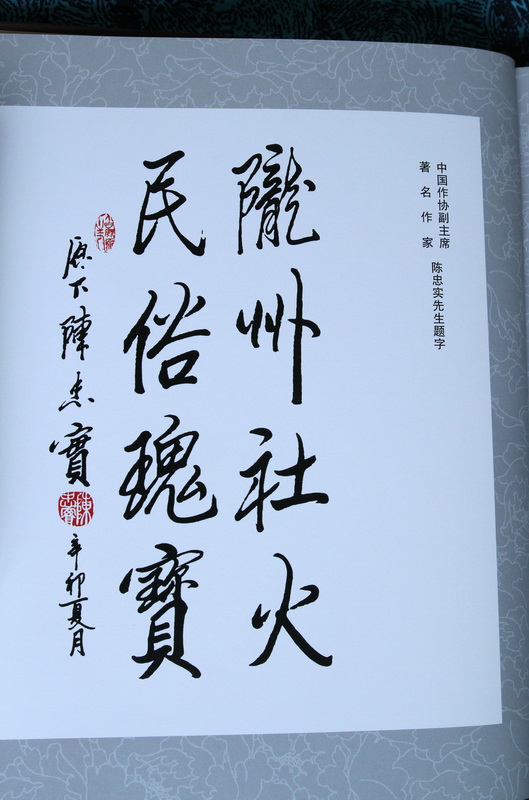 中国作协副主席
著名作家 陈忠实先生题字
隴州社火
民俗瑰寳
原下陳忠實
陳忠實
辛卯夏月